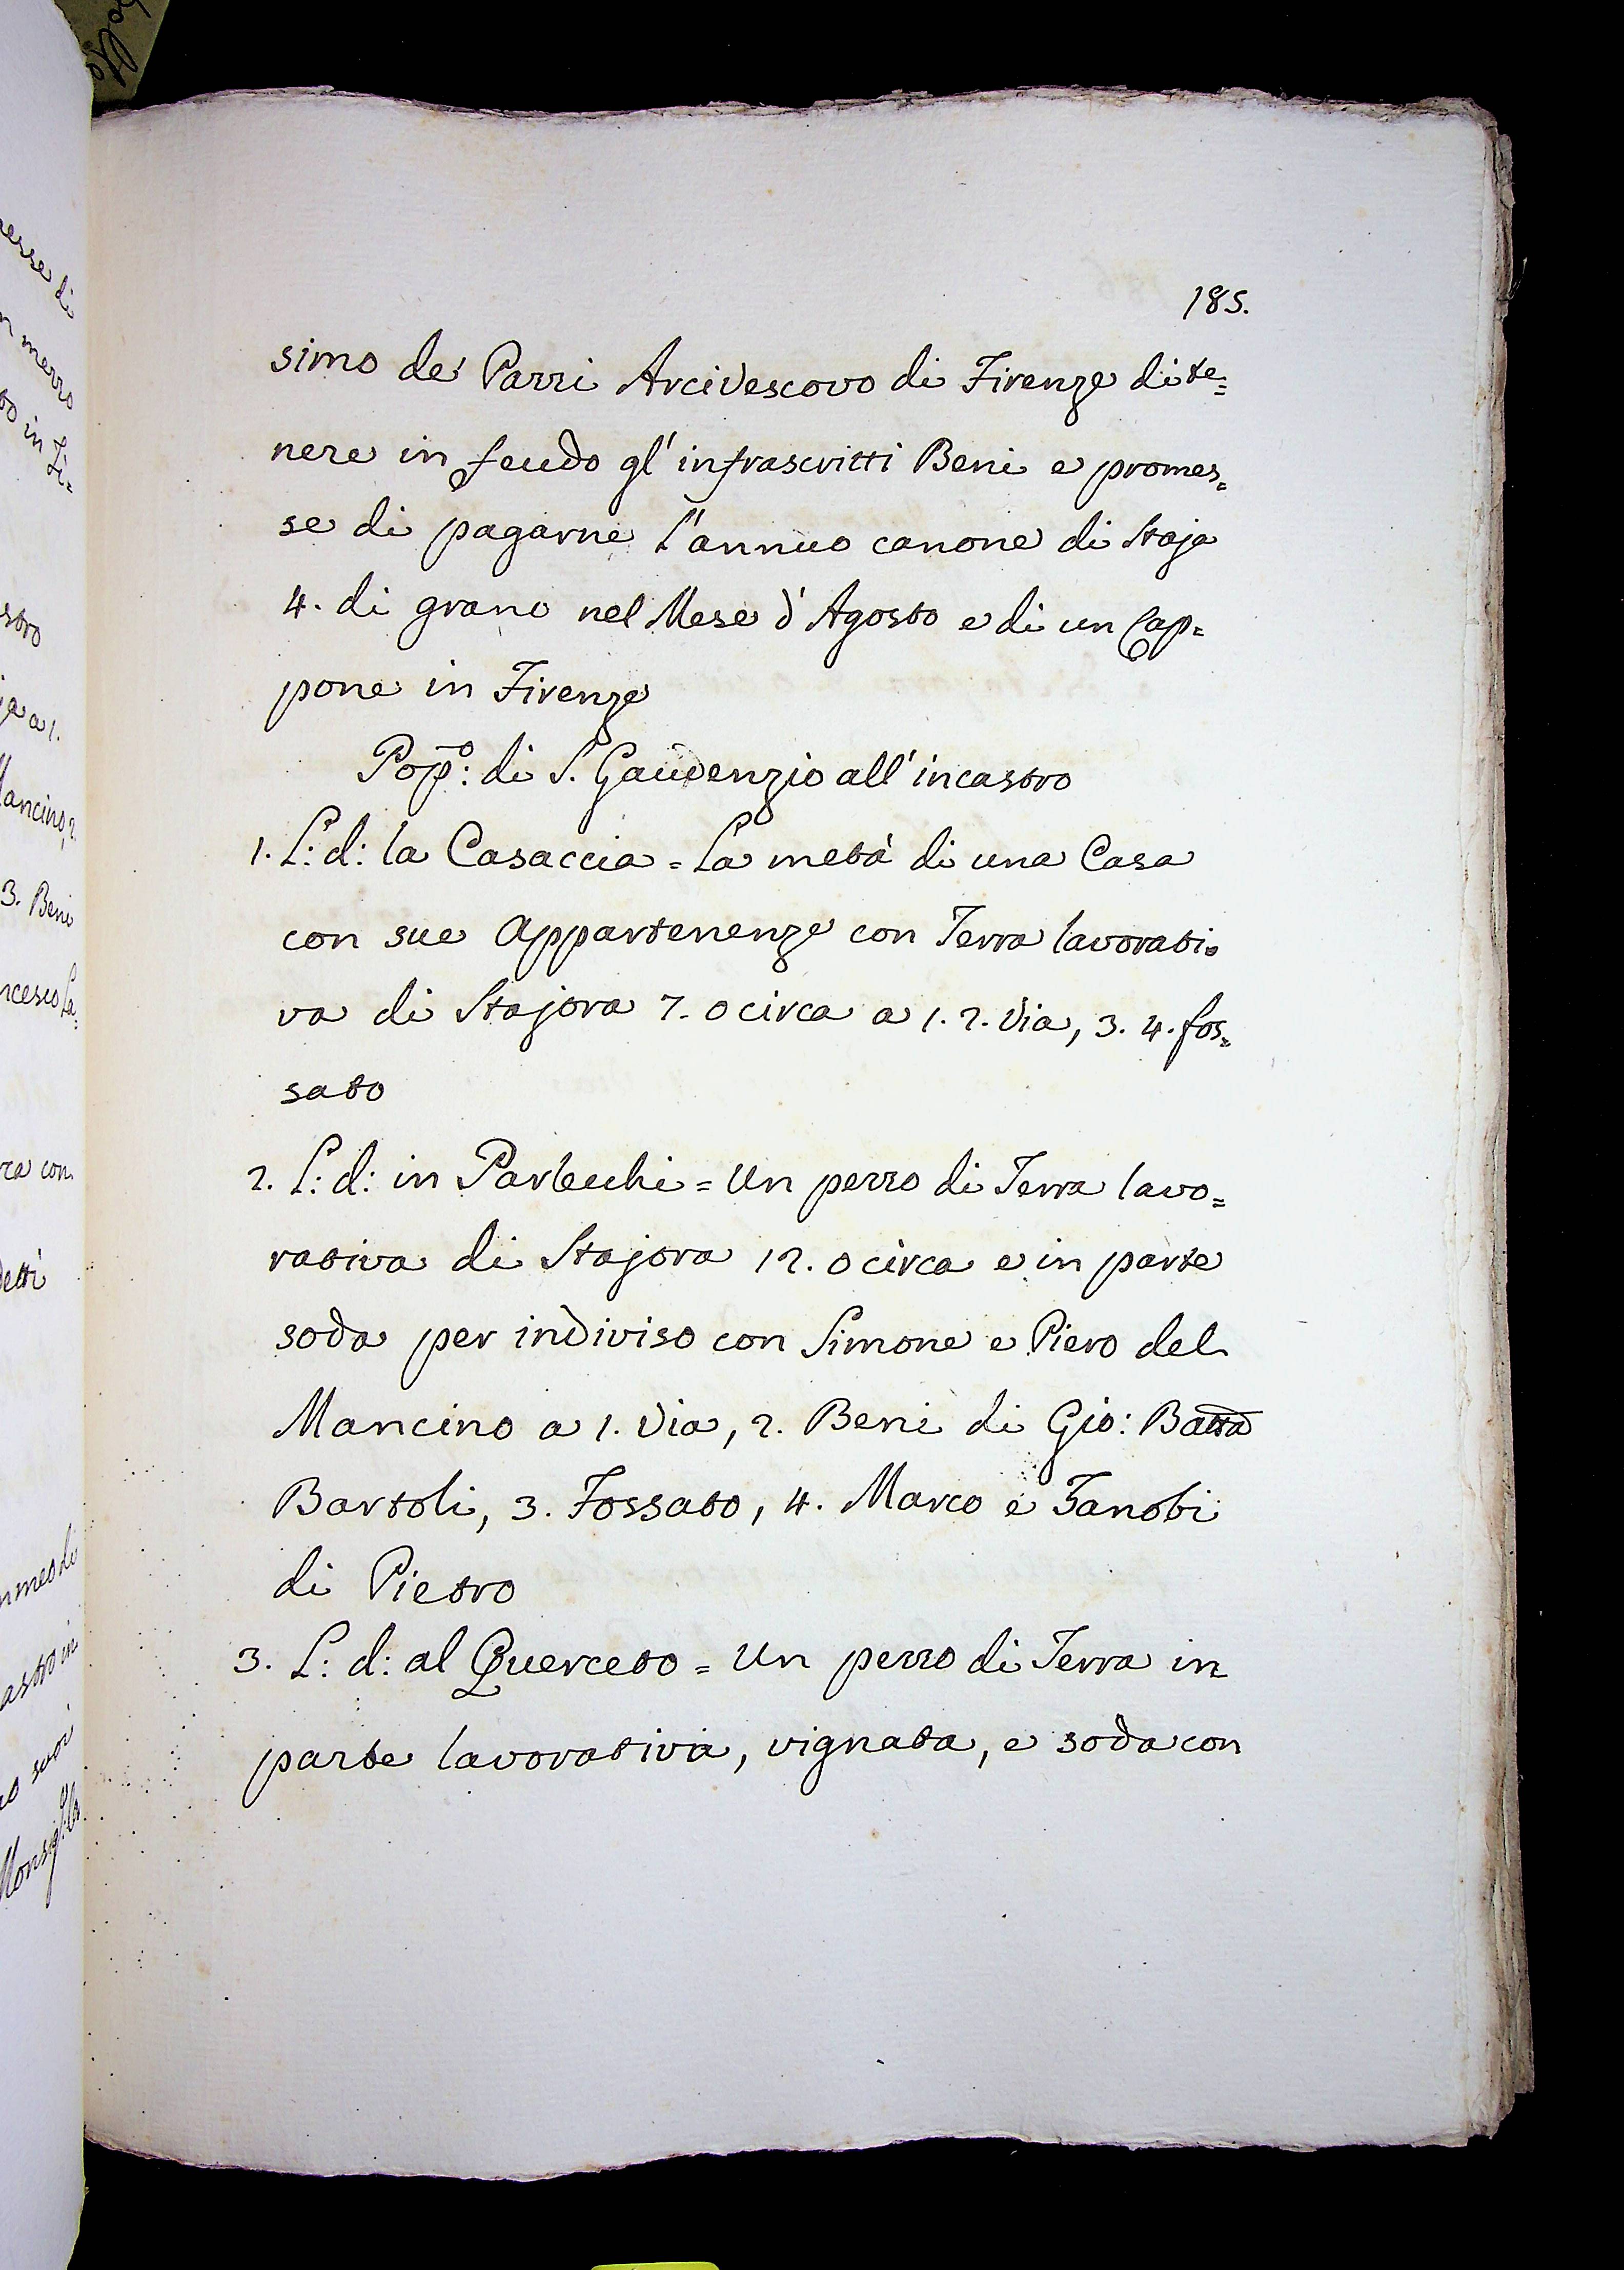 185.
simo de' Pazzi Arcivescovo di Firenze di te=
nere in feudo gl' infrascritti Beni e promes=
se di pagarne l'annuo canone di Staja
4. di grano nel Mese d'Agosto e di un Cap=
pone in Firenze
Pop.º: di S. Gaudenzio all'incastro
1. L: d: la Casaccia = La metà di una Casa
con sue Appartenenze con Terra lavorati=
va di Stajora 7. o circa a 1. 2. Via, 3. 4. fos=
sato
2. L: d: in = Un pezzo di Terra lavo=
rativa di Stajora 12. o circa e in parte
soda per indiviso con Simone e Piero del
Mancino a 1. Via, 2. Beni di Gio: Batta
Bartoli, 3. Fossato, 4. Marco e Zanobi
di Pietro
3. L: d: al Querceto = Un pezzo di Terra in
parte lavorativa, vignata, e soda con